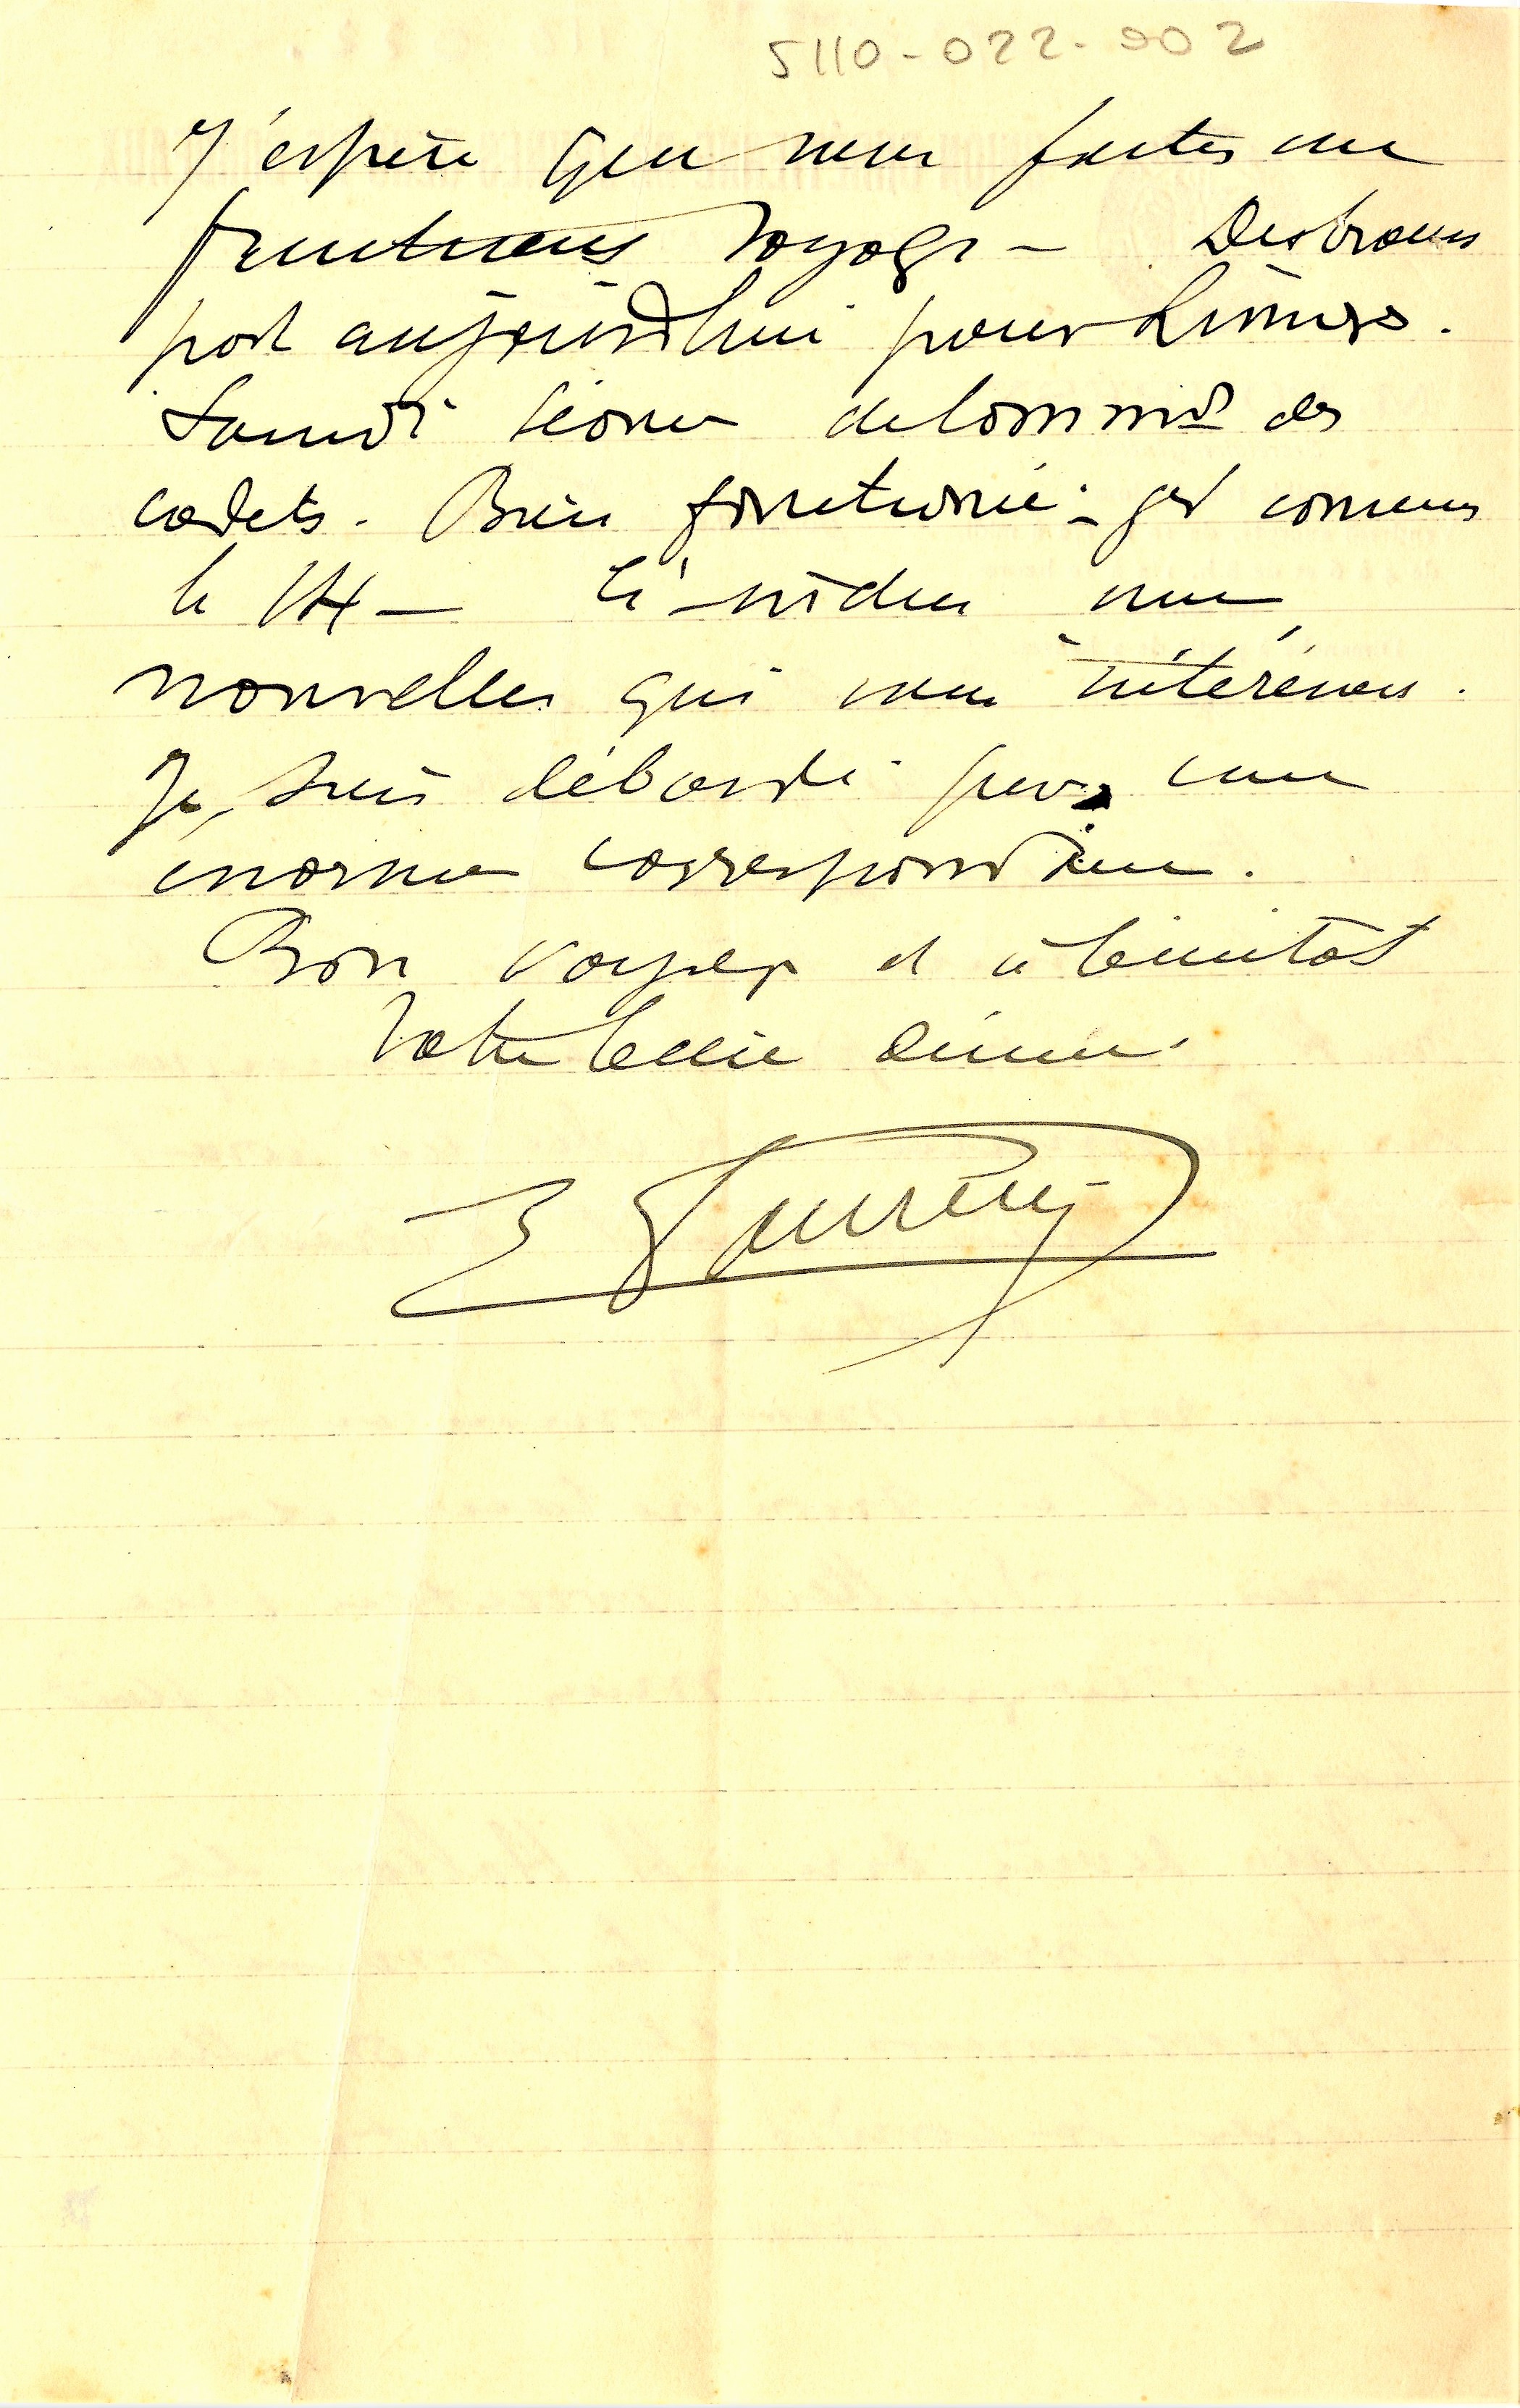 5110-022-002
J'espère que vous faites un
fructueux voyage - Desbrosses
part aujourd'hui pour Limoges.
Samedi séance de la Commission des
cadets. Bien fonctionné - gd concours
le 14 -
nouvelles qui vous intéressent.
Je suis débordé par une
énorme correspondance.
Bon voyage et à bientôt
Votre bien dévoué